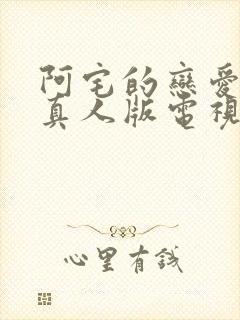 阿宅的戀愛
真人版電視
心里有錢